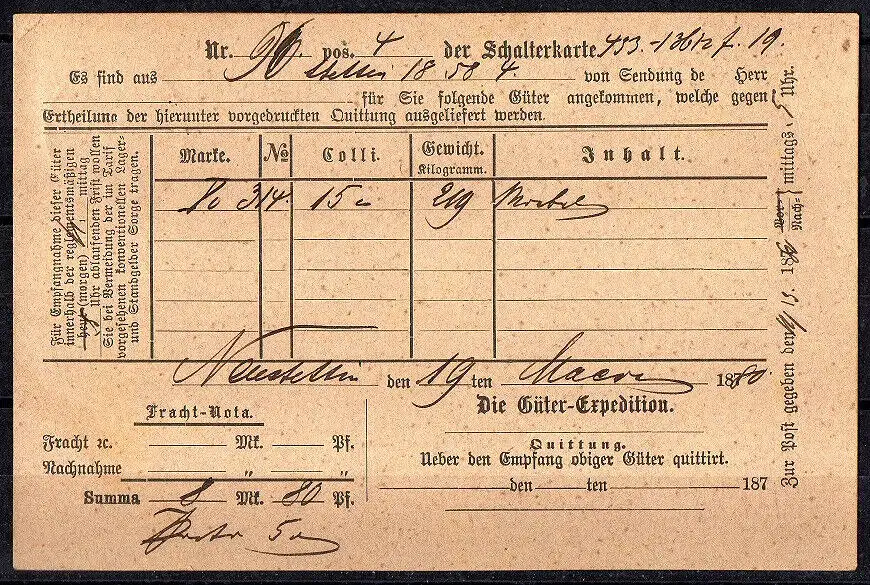 Nr. 96. pos. 4 der Schalterkarte 433.
Es sind aus Stettin von Sendung de Herr
für Sie folgende Güter angekommen, welche gegen
Ertheilung der hierunter vorgedruckten Quittung ausgeliefert werden.
Für Empfangnahme dieser Güter
innerhalb der reglementsmäßigen
heut (morgen) mittag
Uhr ablaufenden Frist wollen
Sie bei Vermeidung der im Tarif
vorgesehenen konventionellen Lager-
und Standgelder Sorge tragen.
Marke. № Colli. Gewicht. Kilogramm. Inhalt.
314. 15 219 Moebel
Neustettin den 19ten Maerz 1880.
Fracht-Nota.
Fracht ꝛc. Mk. Pf.
Nachnahme " "
Summa 8 Mk. 80 Pf.
Porto 5
Die Güter-Expedition.
Quittung.
Ueber den Empfang obiger Güter quittirt.
den ten 187
Zur Post gegeben den 187 Vor- Nach- mittags Uhr.